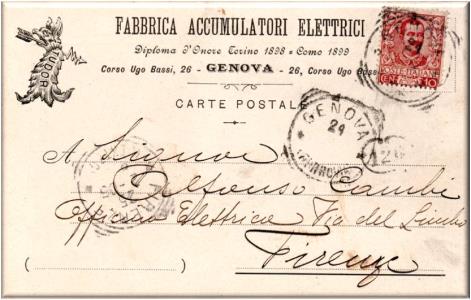 FABBRICA ACCUMULATORI ELETTRICI
Diploma d'Onore Torino 1898 = Como 1899
Corso Ugo Bassi, 26 - GENOVA - 26, Corso Ugo Bassi
TUDOR
CARTE POSTALE
POSTE ITALIANE
CENT. 10
GENOVA
24
(FERROVIA)
12
A Signor
Alfonso Cambi
Officina Elettrica Via del Limbo
Firenze